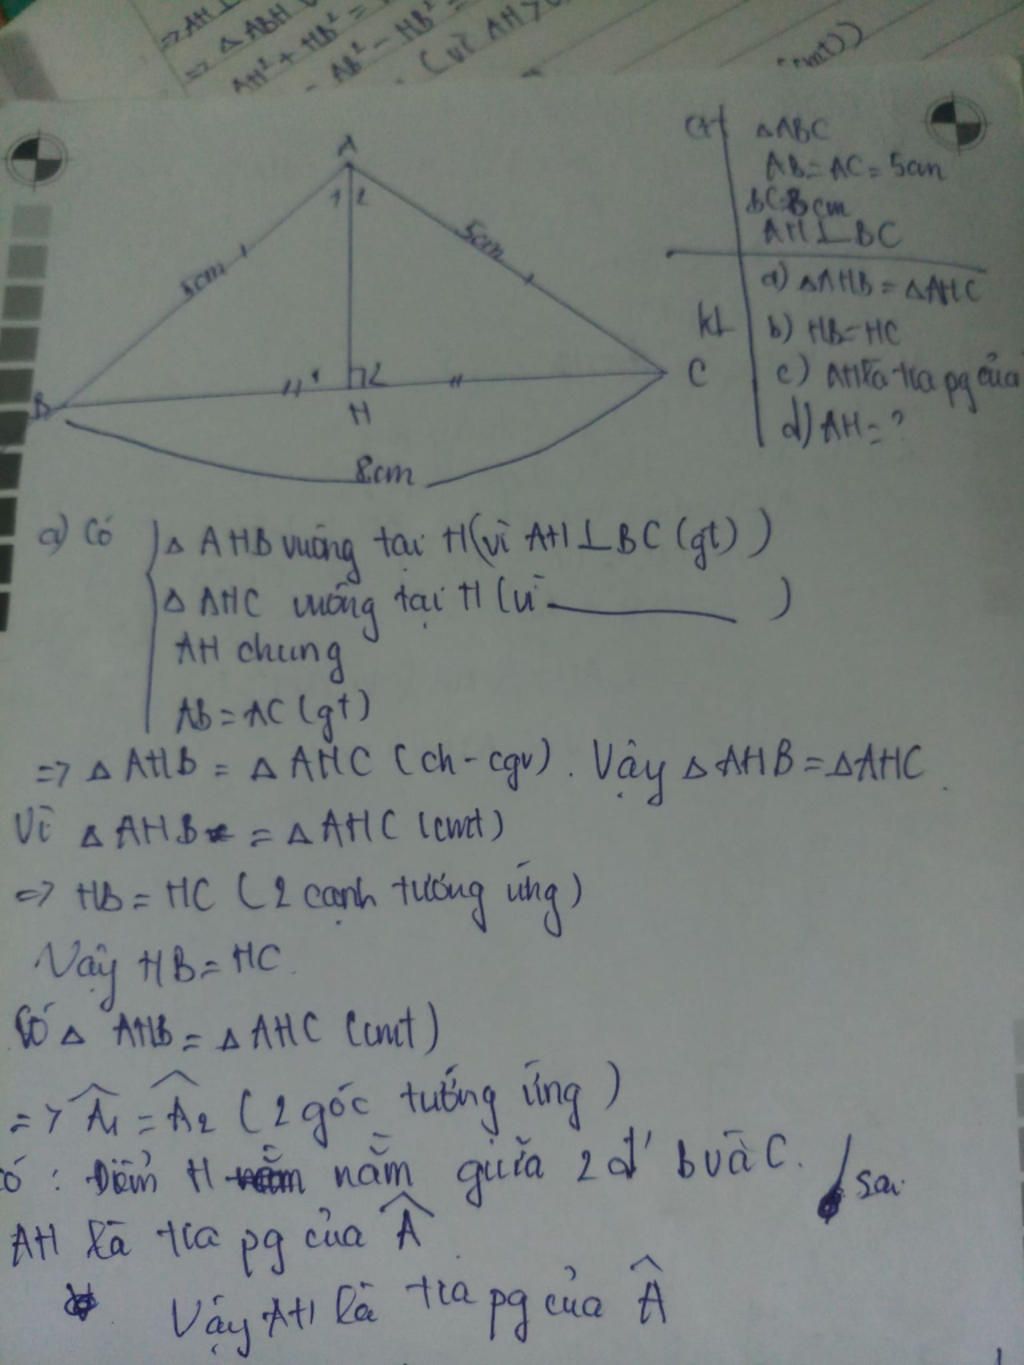 => AH
=> △ ABH
AH² + HB² =
- AB² - HB² =
(vì AH >
(cmt))
A
1 2
5cm
5cm
B
H
C
8cm
GT
△ABC
AB = AC = 5cm
BC=8cm
AH⊥BC
KL
a) △AHB = △AHC
b) HB=HC
c) AH là tia pg của
d) AH = ?
a) Có
△ AHB vuông tại H (vì AH⊥BC (gt))
△ AHC vuông tại H (vì )
AH chung
AB = AC (gt)
=> △ AHB = △ AHC (ch - cgv). Vậy △ AHB = △AHC.
Vì △ AHB = △ AHC (cmt)
=> HB = HC (2 cạnh tương ứng)
Vậy HB = HC.
Có △ AHB = △ AHC (cmt)
=> Â1 = Â2 (2 góc tương ứng)
có : Điểm H nằm giữa 2 đ' B và C. sai
AH là tia pg của Â
Vậy AH là tia pg của Â